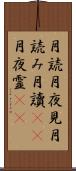 月読月夜見月
読み月讀
月夜霊